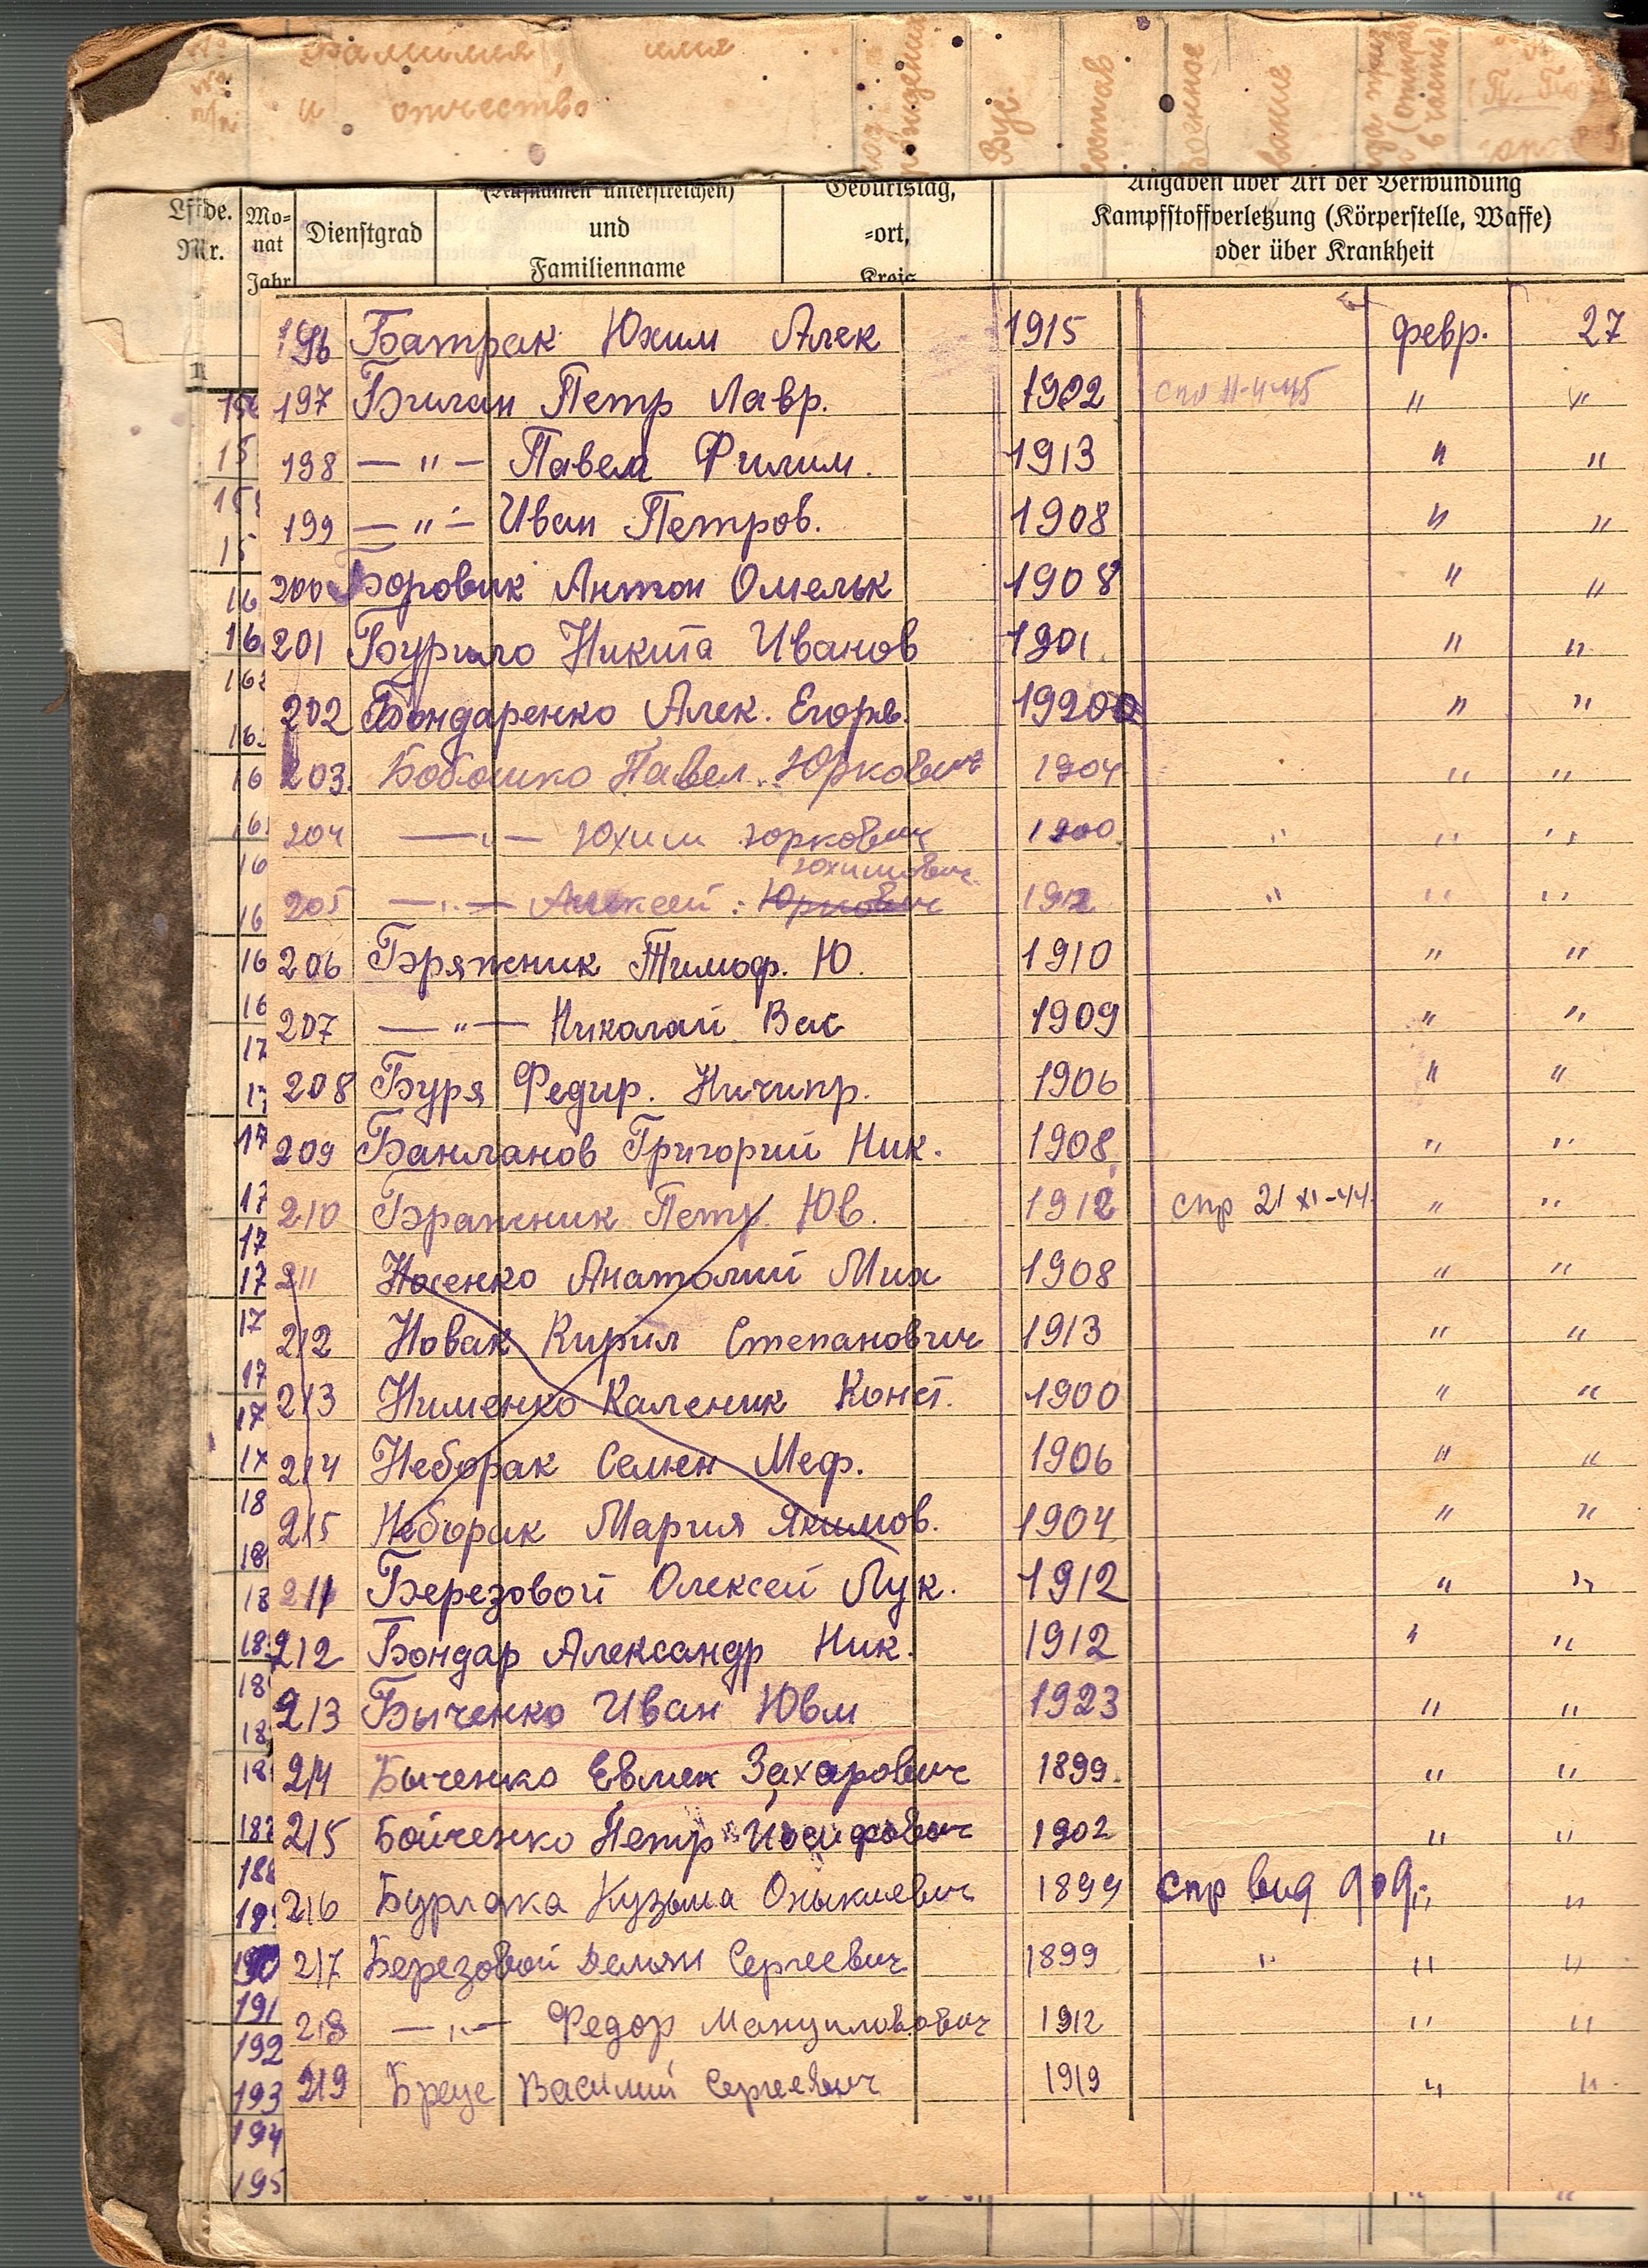 фамилия, имя
и отчество
Lfde. Nr.
Monat Jahr
Dienstgrad
(Rufnamen unterstreichen) und Familienname
Geburtstag, =ort, Kreis
Angaben über Art der Verwundung
Kampfstoffverletzung (Körperstelle, Waffe)
oder über Krankheit
196 Батрак Юхим Алек 1915 февр. 27
197 Билан Петр Лавр. 1922 " "
198 — " — Павел Филим. 1913 " "
199 — " — Иван Петров. 1908 " "
200 Боровик Антон Омельк 1908 " "
201 Бурило Никита Иванов 1901 " "
202 Бондаренко Алек. Егорв. 1920 " "
203. Бобошко Павел Юркович 1904 " "
204 — " — Юхим Юркович 1900 " " "
Юхимович
205 — " — Алексей: Юркович 1912 " " "
206 Бряжник Тимоф. Ю. 1910 " "
207 — " — Николай Вас 1909 " "
208 Буря Федир. Ничипр. 1906 " "
209 Банланов Григорий Ник. 1908 " "
210 Бражник Петр Юв. 1912 спр 21 XI-44 " "
211 Носенко Анатолий Мих 1908 " "
212 Новак Кирил Степанович 1913 " "
213 Нименко Каленик Конст. 1900 " "
214 Неборак Семен Меф. 1906 " "
215 Неборак Мария Якимов. 1904 " "
211 Березовой Олексей Лук. 1912 " "
212 Бондар Александр Ник. 1912 " "
213 Быченко Иван Ювм 1923 " "
214 Быченко Евмен Захарович 1899. " "
215 Бойченко Петр Иосифович 1902 " "
216 Бурлака Кузьма Оныкиевич 1899 спр вид " "
217 Березовой Демян Сергеевич 1899 " " "
218 — " — Федор Мануилович 1912 " "
219 Бреце Василий Сергеевич 1919 " "
191
192
193
194
195